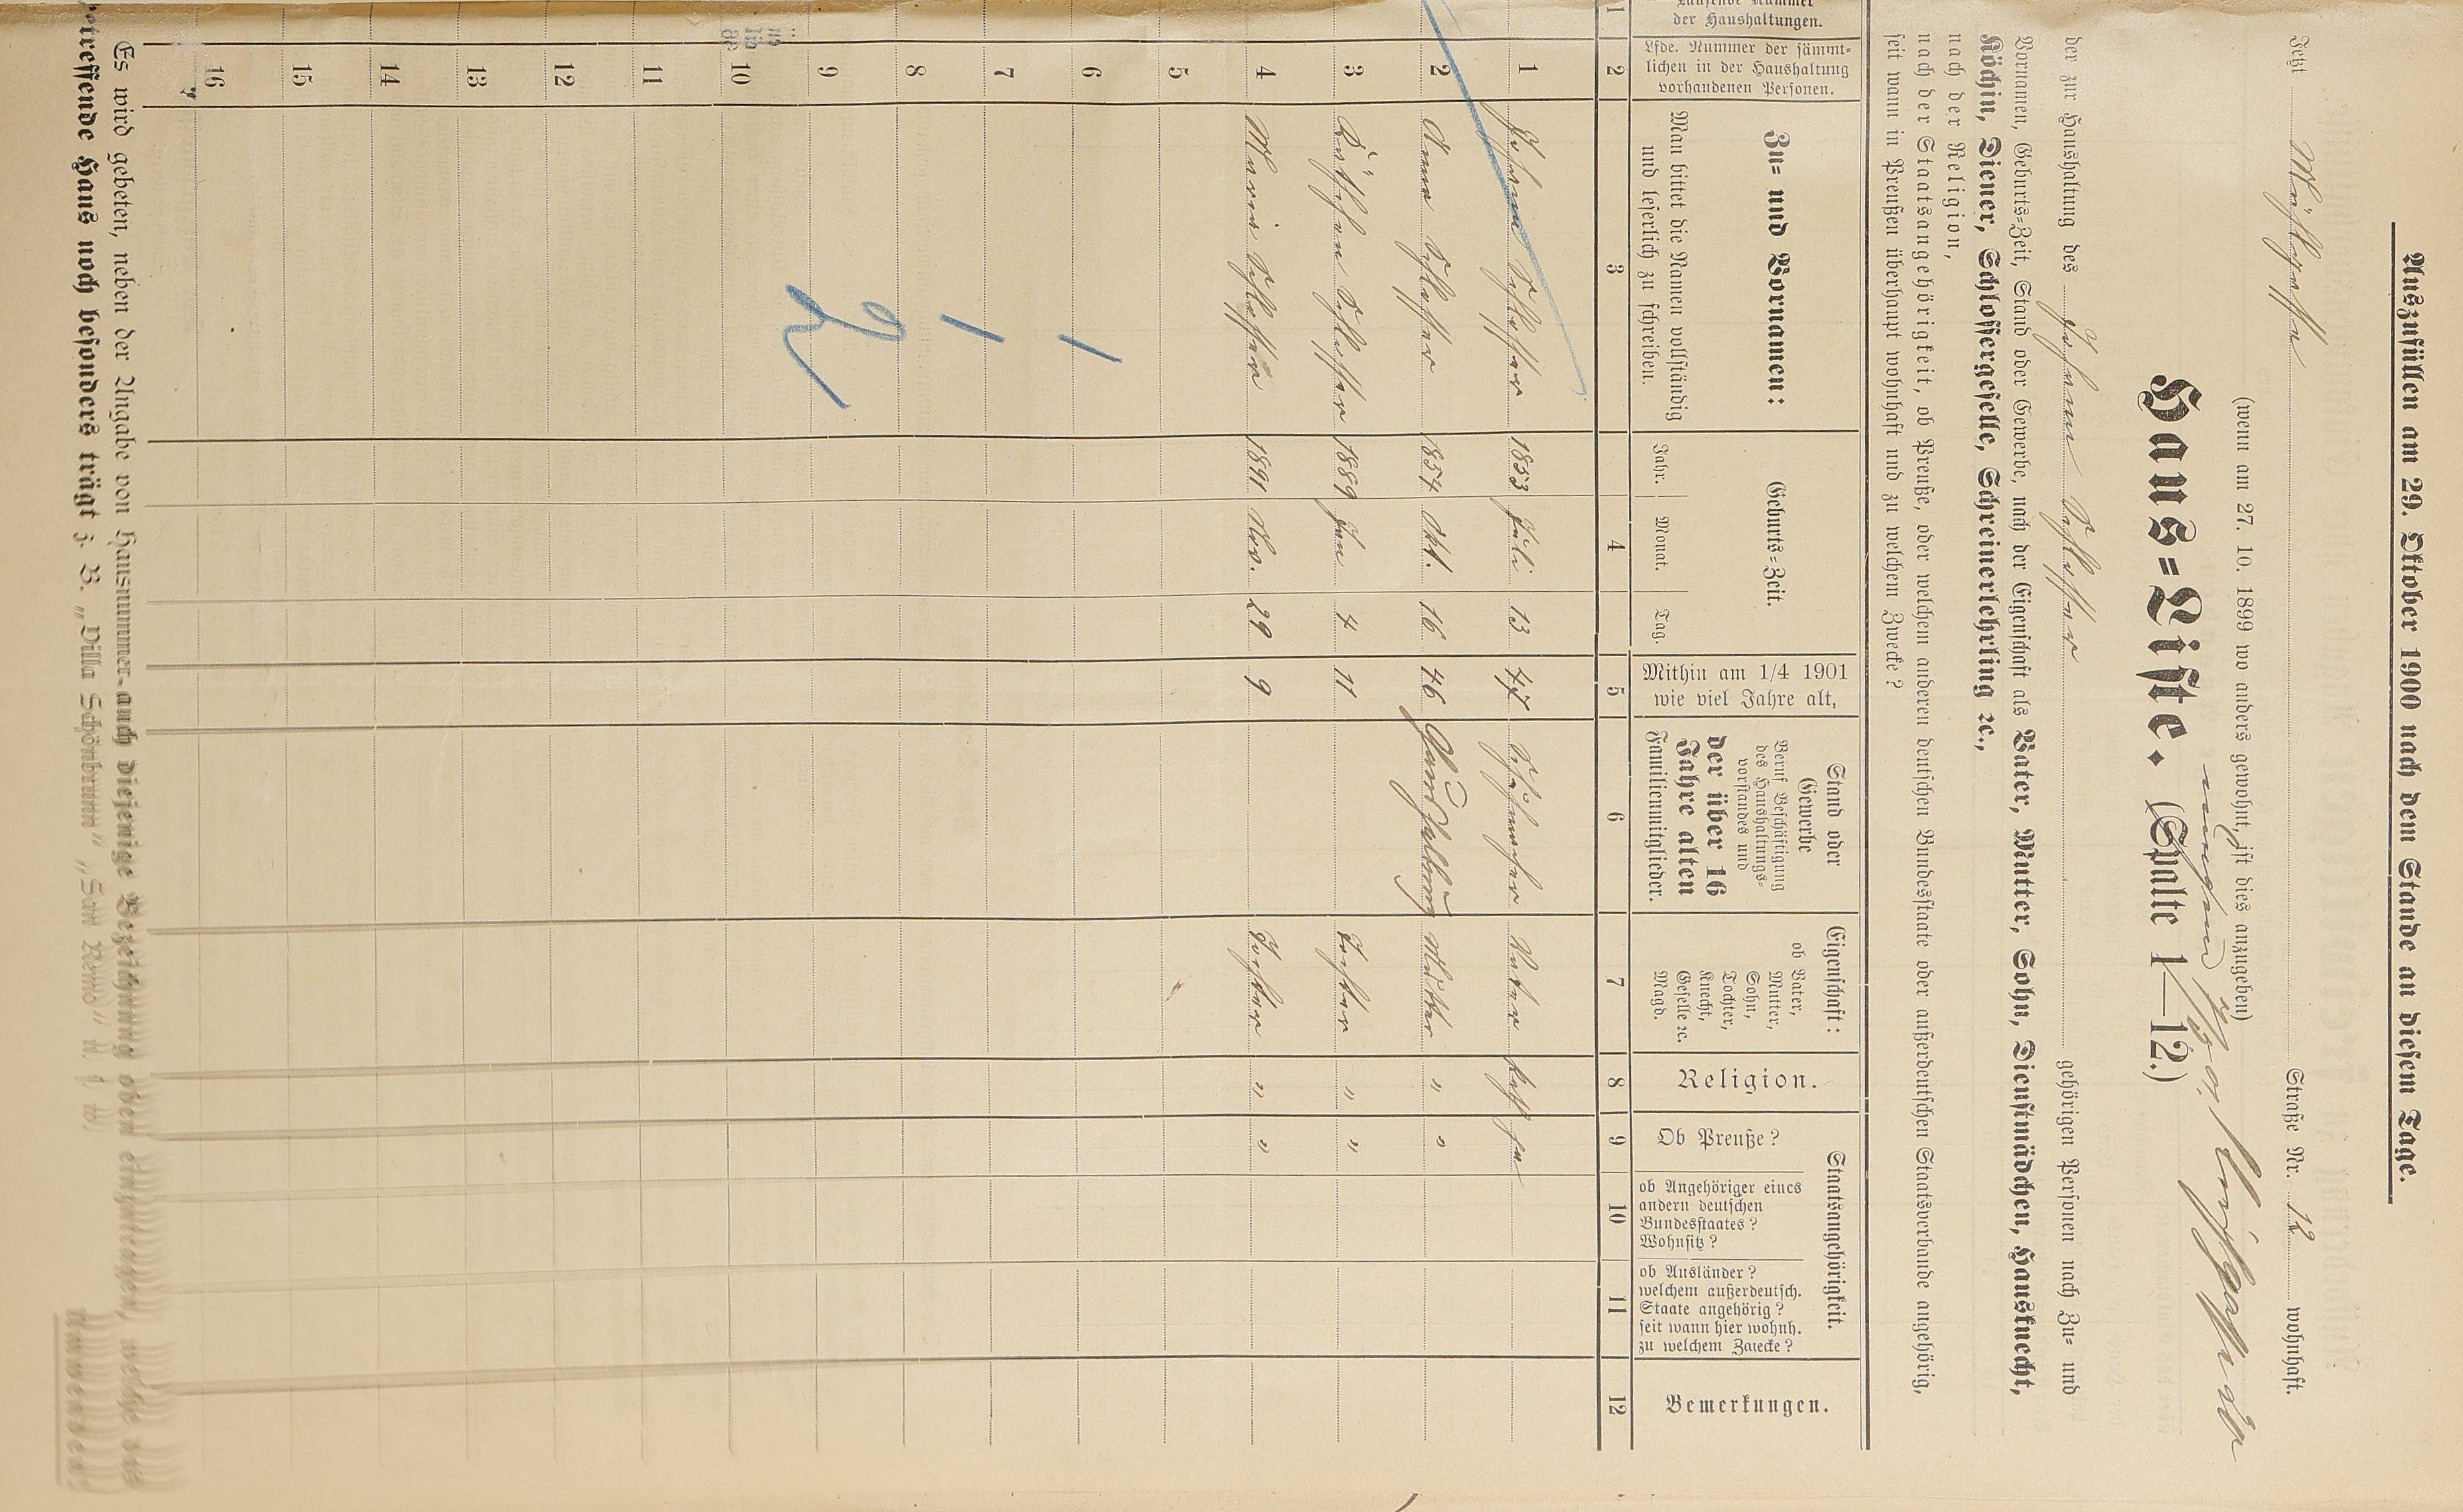 Auszufüllen am 29. Oktober 1900 nach dem Stande an diesem Tage.
Jetzt Straße Nr. 12 wohnhaft.
(wenn am 27. 10. 1899 wo anders gewohnt, ist dies anzugeben)
Haus-Liste. (Spalte 1—12.)
der zur Haushaltung des Johann Schlosser gehörigen Personen nach Zu- und
Vornamen, Geburts-Zeit, Stand oder Gewerbe, nach der Eigenschaft als Vater, Mutter, Sohn, Dienstmädchen, Hausknecht,
Köchin, Diener, Schlossergeselle, Schreinerlehrling ꝛc.,
nach der Religion,
nach der Staatsangehörigkeit, ob Preuße, oder welchem anderen deutschen Bundesstaate oder außerdeutschen Staatsverbande angehörig,
seit wann in Preußen überhaupt wohnhaft und zu welchem Zwecke?
der Haushaltungen.
Lfde. Nummer der sämmt-
lichen in der Haushaltung
vorhandenen Personen.
Zu- und Vornamen:
Man bittet die Namen vollständig
und leserlich zu schreiben.
Geburts-Zeit.
Jahr. Monat. Tag.
Mithin am 1/4 1901
wie viel Jahre alt,
Stand oder
Gewerbe
Beruf Beschäftigung
des Haushaltungs-
vorstandes und
der über 16
Jahre alten
Familienmitglieder.
Eigenschaft:
ob Vater,
Mutter,
Sohn,
Tochter,
Knecht,
Geselle ꝛc.
Magd.
Religion.
Staatsangehörigkeit.
Ob Preuße?
ob Angehöriger eines
andern deutschen
Bundesstaates?
Wohnsitz?
ob Ausländer?
welchem außerdeutsch.
Staate angehörig?
seit wann hier wohnh.
zu welchem Zwecke?
Bemerkungen.
1 2 3 4 5 6 7 8 9 10 11 12
1 Johann Schlosser 1853 Juli 13 47 Schuhmacher Vater kath ja
2 Anna Schlosser 1854 Okt. 16 46 Haushaltung Mutter " "
3 Käthchen Schlosser 1889 Jan 4 11 Tochter " "
4 Maria Schlosser 1891 Nov. 29 9 Tochter " "
5
6 1
7 1
8
9 2
10
11
12
13
14
15
16
Es wird gebeten, neben der Angabe von Hausnummer auch diejenige Bezeichnung oben einzutragen, welche das
betreffende Haus noch besonders trägt z. B. „Villa Schönbrunn" „San Remo" u. s. w.